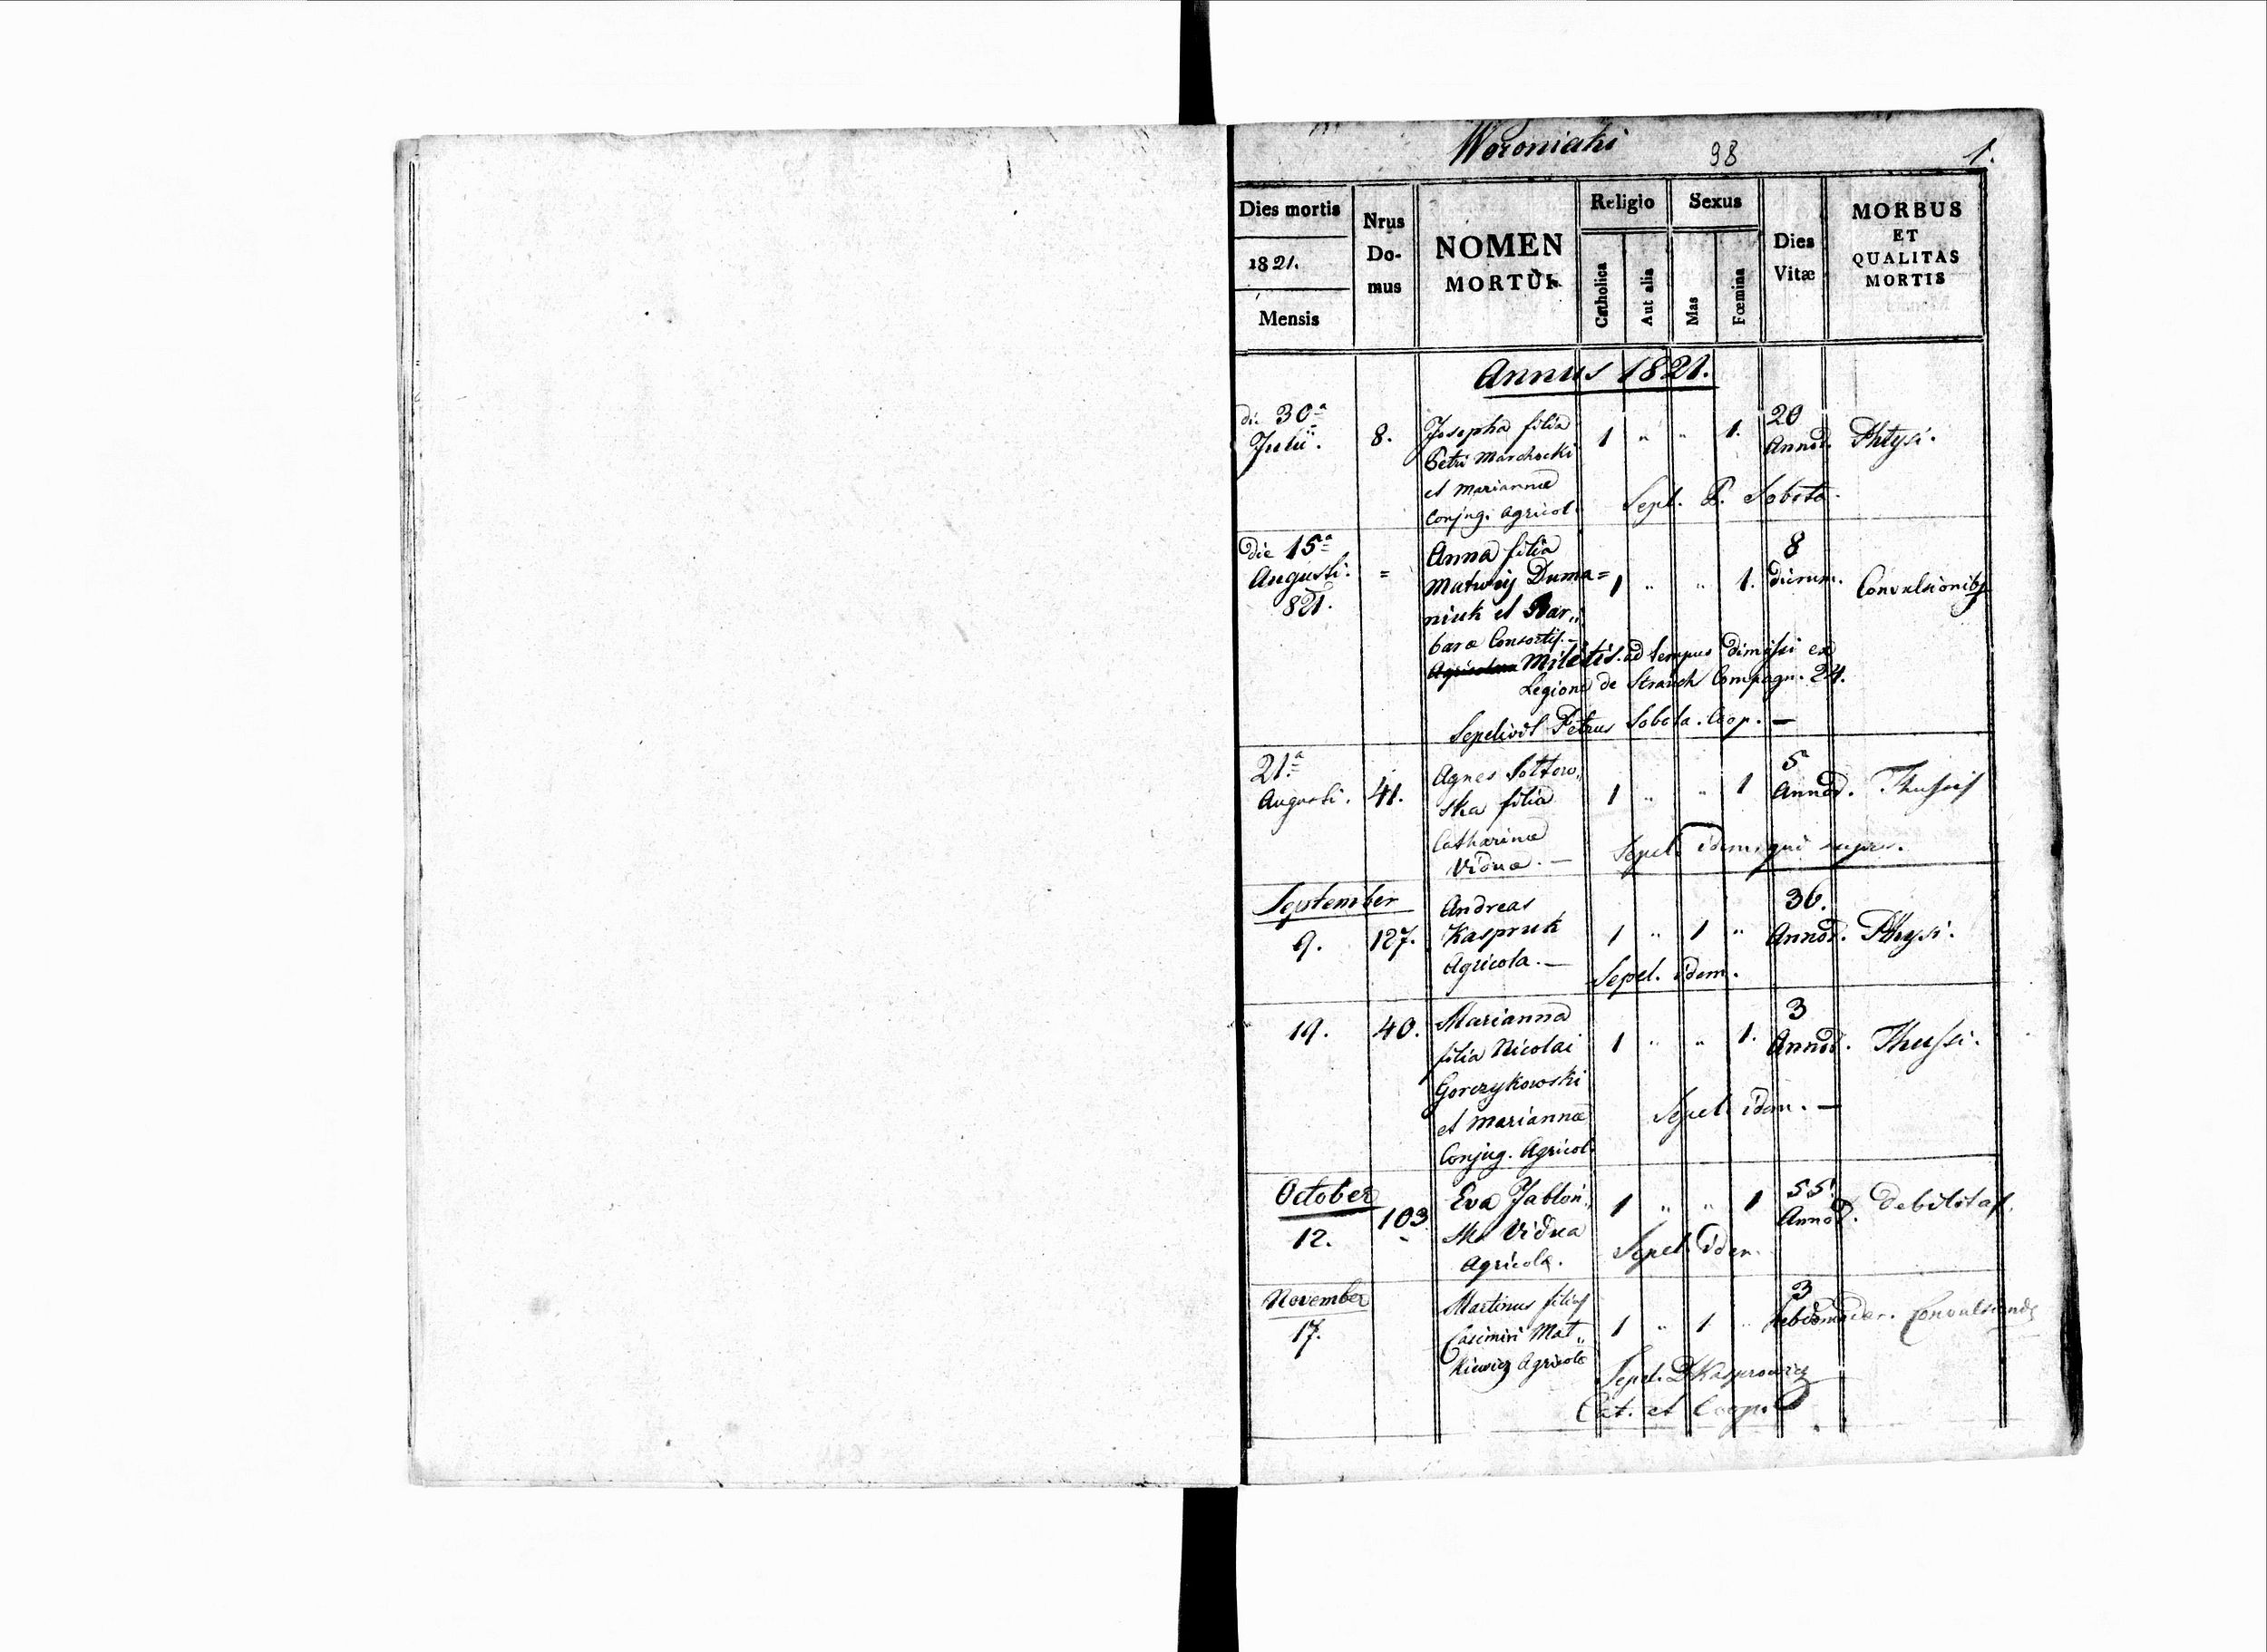 Woroniaki 98 1.
Dies mortis
1821.
Mensis
Nrus
Do-
mus
NOMEN
MORTUI
Religio
Catholica
Aut alia
Sexus
Mas
Fœmina
Dies
Vitæ
MORBUS
ET
QUALITAS
MORTIS
Annus 1821.
die 30ª 8. Josepha filia 1 " " 1. 20
Julii. Petri Marchocki Annor. Phtysi.
et Mariannæ
Conjug. Agricol. Sepel. P. Sobota.
die 15ª = Anna filia 8
Augusti. Matwij Duma= 1 " " 1. dierum. Convulsionibq
821. niuk et Bar„
baræ Consortis.-
Agricolæ Militis ad tempus dimissi ex
Legione de Strauch Compagn. 24.
Sepelivit Petrus Sobota. Coop. —
21ª 41. Agnes Sołtow„ 1 " " 1 5
Augusti. ska filia Annor. Thussis
Catharinæ
Viduæ. — Sepel. idem qui supra.
September Andreas 36.
9. 127. Kaspruk 1 " 1 " Annor. Phtysi.
Agricola. — Sepel. idem.
19. 40. Marianna 3
filia Nicolai 1 " " 1. Annor. Thussi.
Gorczykowski
et Mariannæ Sepel. idem. —
Conjug. Agricol.
October 103 Eva Jabłoń„ 1 " " 1 55 debilitas.
12. ska Vidua Annor.
Agricola. Sepel. idem.
November Martinus filius 3
17. Casimiri Mat„ 1 " 1 " hebdomadar. Convulsionibq
kiewicz Agricolæ
Sepel. D Kasprowicz
Cat. et Coop.